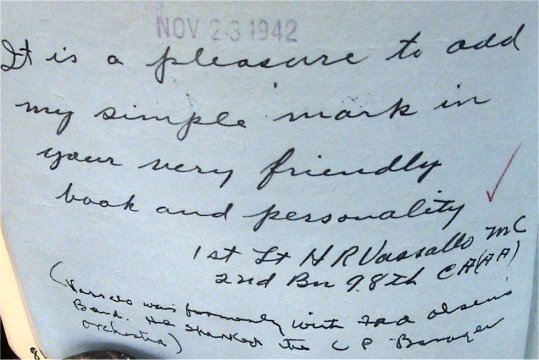 NOV 23 1942
It is a pleasure to add
my simple mark in
your very friendly
book and personality
1st Lt H R Vassallo MC
2nd Bn 98th CA(AA)
(Vassalo was formerly with
Band. He the C P
orchestra)